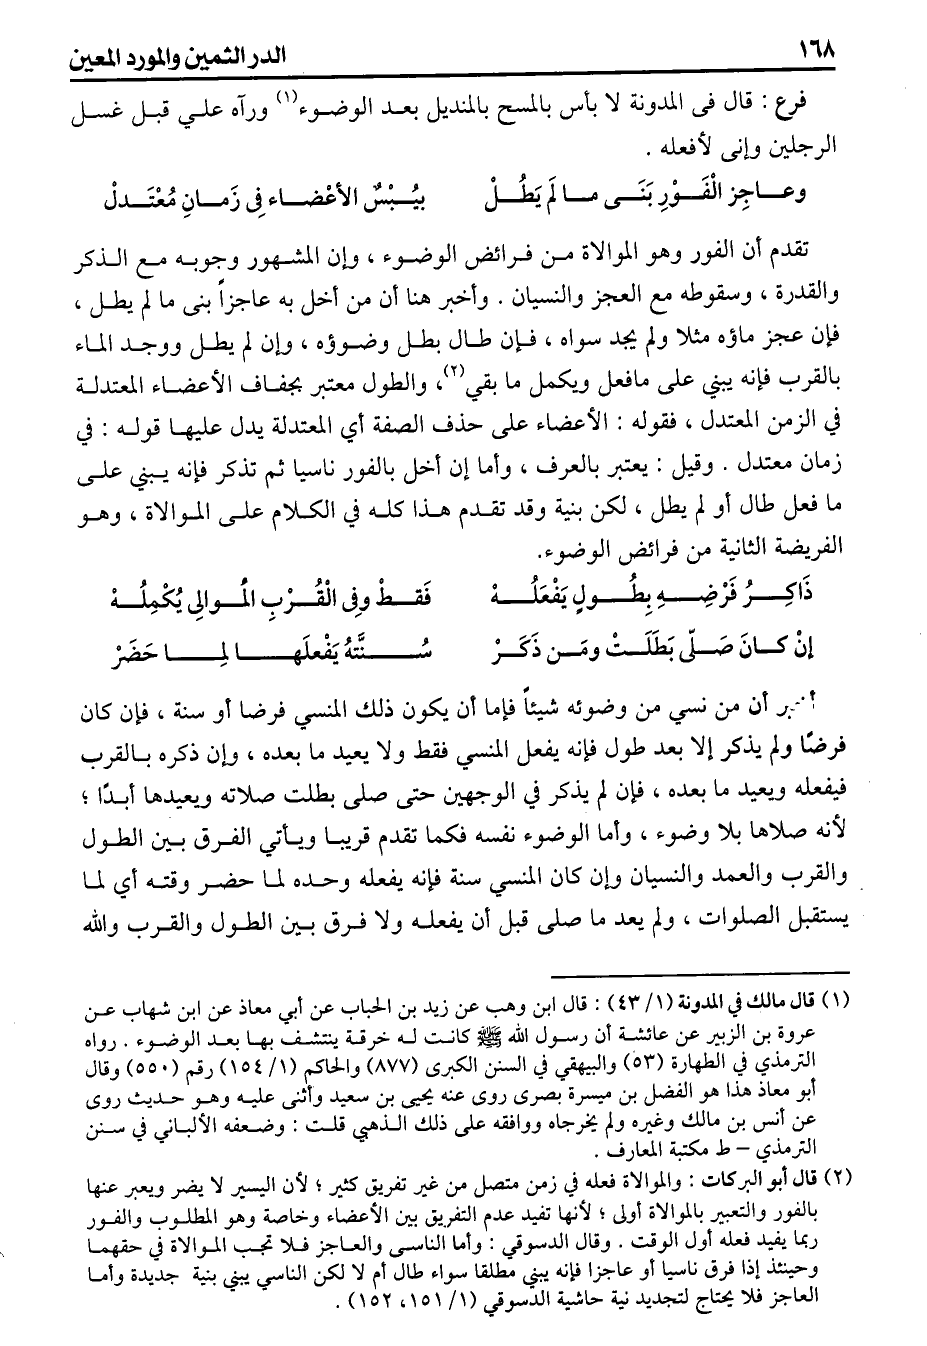 ١٦٨ الدر الثمين والمورد المعين
فرع : قال فى المدونة لا بأس بالمسح بالمنديل بعد الوضوء(١) ورآه علي قبل غسل
الرجلين وإنى لأفعله .
وعاجز الْفَوْرِ بَنَى ما لَمْ يَطُلْ بيُبْسٌ الأعْضاء فِى زَمَانِ مُعْتَدلْ
تقدم أن الفور وهو الموالاة من فرائض الوضوء ، وإن المشهور وجوبه مع الذكر
والقدرة ، وسقوطه مع العجز والنسيان . وأخبر هنا أن من أخل به عاجزاً بنى ما لم يطل ،
فإن عجز ماؤه مثلا ولم يجد سواه ، فإن طال بطل وضوؤه ، وإن لم يطل ووجد الماء
بالقرب فإنه يبني على مافعل ويكمل ما بقي(٢)، والطول معتبر بجفاف الأعضاء المعتدلة
في الزمن المعتدل ، فقوله : الأعضاء على حذف الصفة أي المعتدلة يدل عليها قوله : في
زمان معتدل . وقيل : يعتبر بالعرف ، وأما إن أخل بالفور ناسيا ثم تذكر فإنه يبني على
ما فعل طال أو لم يطل ، لكن بنية وقد تقدم هذا كله في الكلام على الموالاة ، وهو
الفريضة الثانية من فرائض الوضوء.
ذَاكِرُ فَرْضِهِ بِطُولٍ يَفْعَلُهْ فَقَطْ وفِى الْقُرْبِ الُموالِى يُكْمِلُهْ
إنْ كانَ صَلّى بَطَلَتْ ومَن ذَكَرْ سُنَّتَهُ يَفْعَلهَا لِما حَضَرْ
أخبر أن من نسي من وضوئه شيئاً فإما أن يكون ذلك المنسي فرضا أو سنة ، فإن كان
فرضًا ولم يذكر إلا بعد طول فإنه يفعل المنسي فقط ولا يعيد ما بعده ، وإن ذكره بالقرب
فيفعله ويعيد ما بعده ، فإن لم يذكر في الوجهين حتى صلى بطلت صلاته ويعيدها أبدًا ؛
لأنه صلاها بلا وضوء ، وأما الوضوء نفسه فكما تقدم قريبا ويأتي الفرق بين الطول
والقرب والعمد والنسيان وإن كان المنسي سنة فإنه يفعله وحده لما حضر وقته أي لما
يستقبل الصلوات ، ولم يعد ما صلى قبل أن يفعله ولا فرق بين الطول والقرب والله
(١) قال مالك في المدونة (١/ ٤٣) : قال ابن وهب عن زيد بن الحباب عن أبي معاذ عن ابن شهاب عن
عروة بن الزبير عن عائشة أن رسول الله ﷺ كانت له خرقة يتنشف بها بعد الوضوء . رواه
الترمذي في الطهارة (٥٣) والبيهقي في السنن الكبرى (٨٧٧) والحاكم (١/ ١٥٤) رقم (٥٥٠) وقال
أبو معاذ هذا هو الفضل بن ميسرة بصرى روى عنه يحيى بن سعيد وأثنى عليه وهو حديث روى
عن أنس بن مالك وغيره ولم يخرجاه ووافقه على ذلك الذهبي قلت : وضعفه الألباني في سنن
الترمذي – ط مكتبة المعارف .
(٢) قال أبو البركات : والموالاة فعله في زمن متصل من غير تفريق كثير ؛ لأن اليسير لا يضر ويعبر عنها
بالفور والتعبير بالموالاة أولى ؛ لأنها تفيد عدم التفريق بين الأعضاء وخاصة وهو المطلوب والفور
ربما يفيد فعله أول الوقت . وقال الدسوقي : وأما الناسى والعاجز فلا تجب الموالاة في حقهما
وحينئذ إذا فرق ناسيا أو عاجزا فإنه يبني مطلقا سواء طال أم لا لكن الناسي يبني بنية جديدة وأما
العاجز فلا يحتاج لتجديد نية حاشية الدسوقي (١/ ١٥١، ١٥٢) .